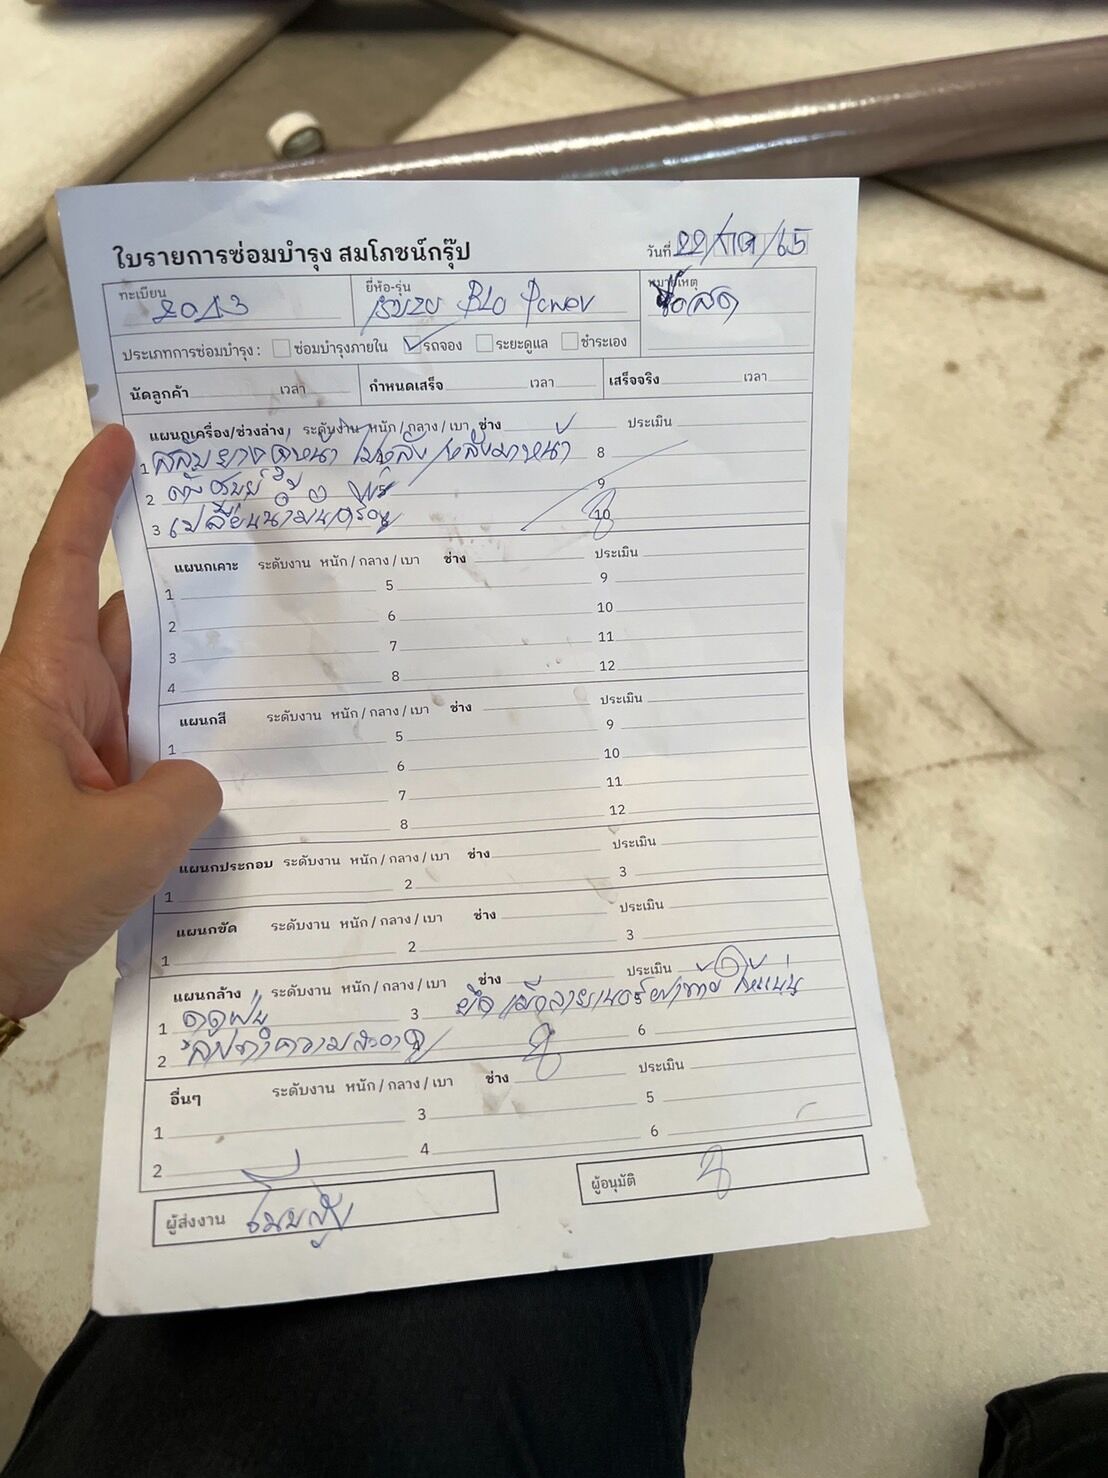 ใบรายการซ่อมบำรุง สมโภชน์กรุ๊ป
วันที่ 22/กค/65
ทะเบียน
ยี่ห้อ-รุ่น
หมายเหตุ
Power
ซื้อสด
ประเภทการซ่อมบำรุง : ซ่อมบำรุงภายใน รถจอง ระยะดูแล ชำระเอง
นัดลูกค้า เวลา กำหนดเสร็จ เวลา เสร็จจริง เวลา
แผนกเครื่อง/ช่วงล่าง ระดับงาน หนัก / กลาง / เบา ช่าง ประเมิน
1 สลับยาง หน้า ไปหลัง/หลังมาหน้า 8
2 ตั้งศูนย์ 9
3 เปลี่ยนน้ำมันเครื่อง 10
แผนกเคาะ ระดับงาน หนัก / กลาง / เบา ช่าง ประเมิน
1 5 9
2 6 10
3 7 11
4 8 12
แผนกสี ระดับงาน หนัก / กลาง / เบา ช่าง ประเมิน
1 5 9
6 10
7 11
8 12
แผนกประกอบ ระดับงาน หนัก / กลาง / เบา ช่าง ประเมิน
1 2 3
แผนกขัด ระดับงาน หนัก / กลาง / เบา ช่าง ประเมิน
1 2 3
แผนกล้าง ระดับงาน หนัก / กลาง / เบา ช่าง ประเมิน
1 ดูดฝุ่น 3 ยึด ให้แน่น
2 ทำความสะอาด 6
อื่นๆ ระดับงาน หนัก / กลาง / เบา ช่าง ประเมิน
1 3 5
2 4 6
ผู้ส่งงาน
ผู้อนุมัติ